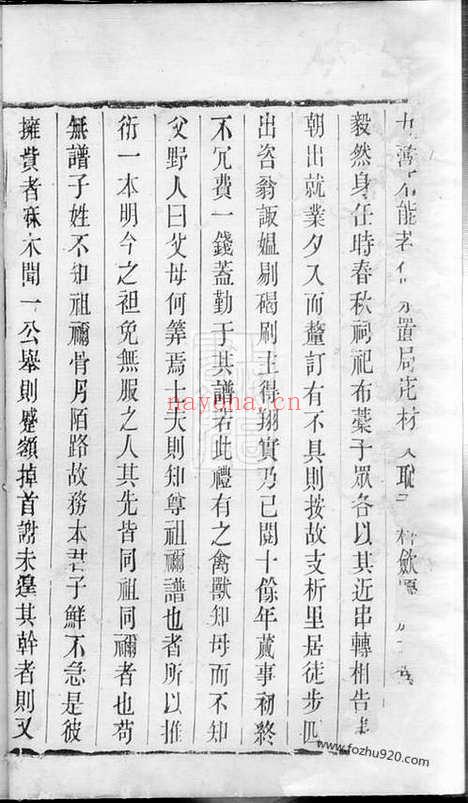 能 置局庀材 人 斂
毅然身任時春秋祠祀布藁子眾各以其近串轉相告
朝出就業夕入而釐訂有不具則按故支析里居徒步四
出咨翁諏媼剔碣刷主得翔實乃已閱十餘年蕆事初終
不冗費一錢蓋勤于其譜若此禮有之禽獸知母而不知
父野人曰父母何筭焉士大夫則知尊祖禰譜也者所以推
衍一本明今之袒免無服之人其先皆同祖同禰者也苟
無譜子姓不知祖禰骨月陌路故務本君子鮮不急是彼
擁貲者秝木聞一公舉則蹙額掉首謝未遑其幹者則又
nayona.cn
www.fozhu920.com